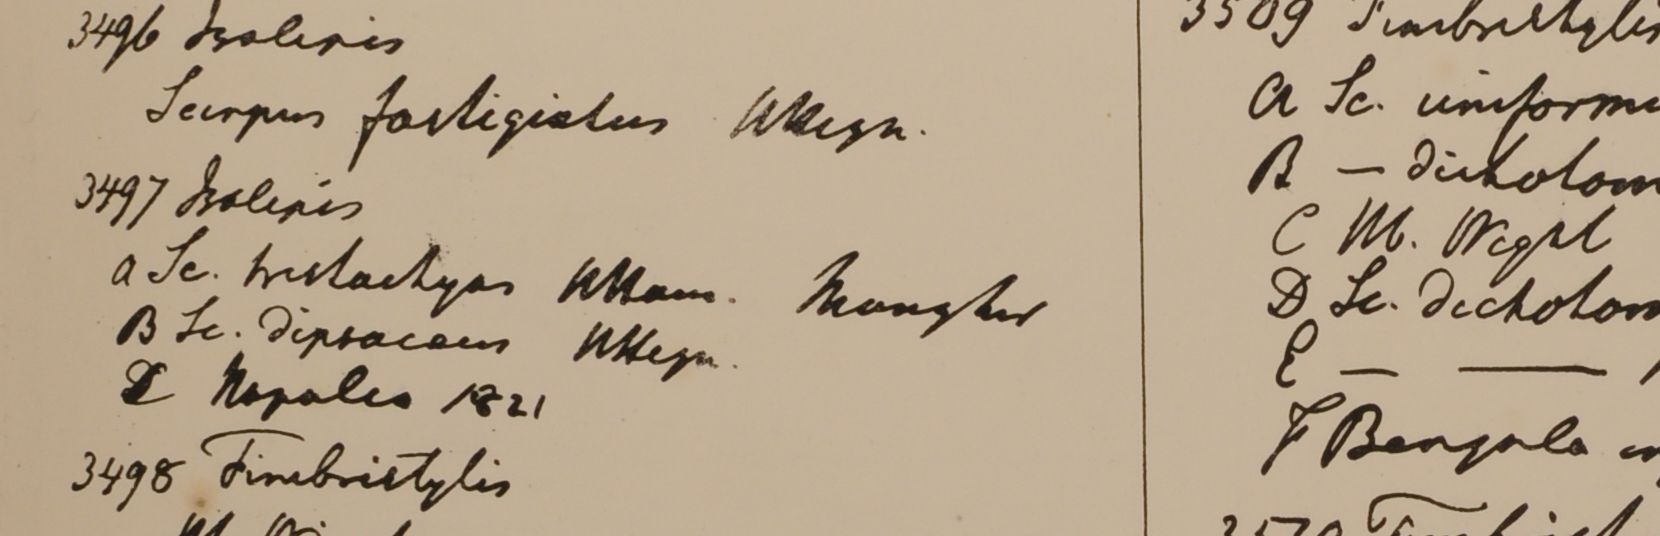 3496 Isolepis
Scirpus fastigiatus
3497 Isolepis
a Sc. tristachyos HHam. Mongher
B Sc. dipsaceus
Napalia 1821
3498 Fimbristylis
3509 Fimbristylis
a Sc.
B — dichotom
C H. Wight
D Sc. dichotom
E — —
F Bengala